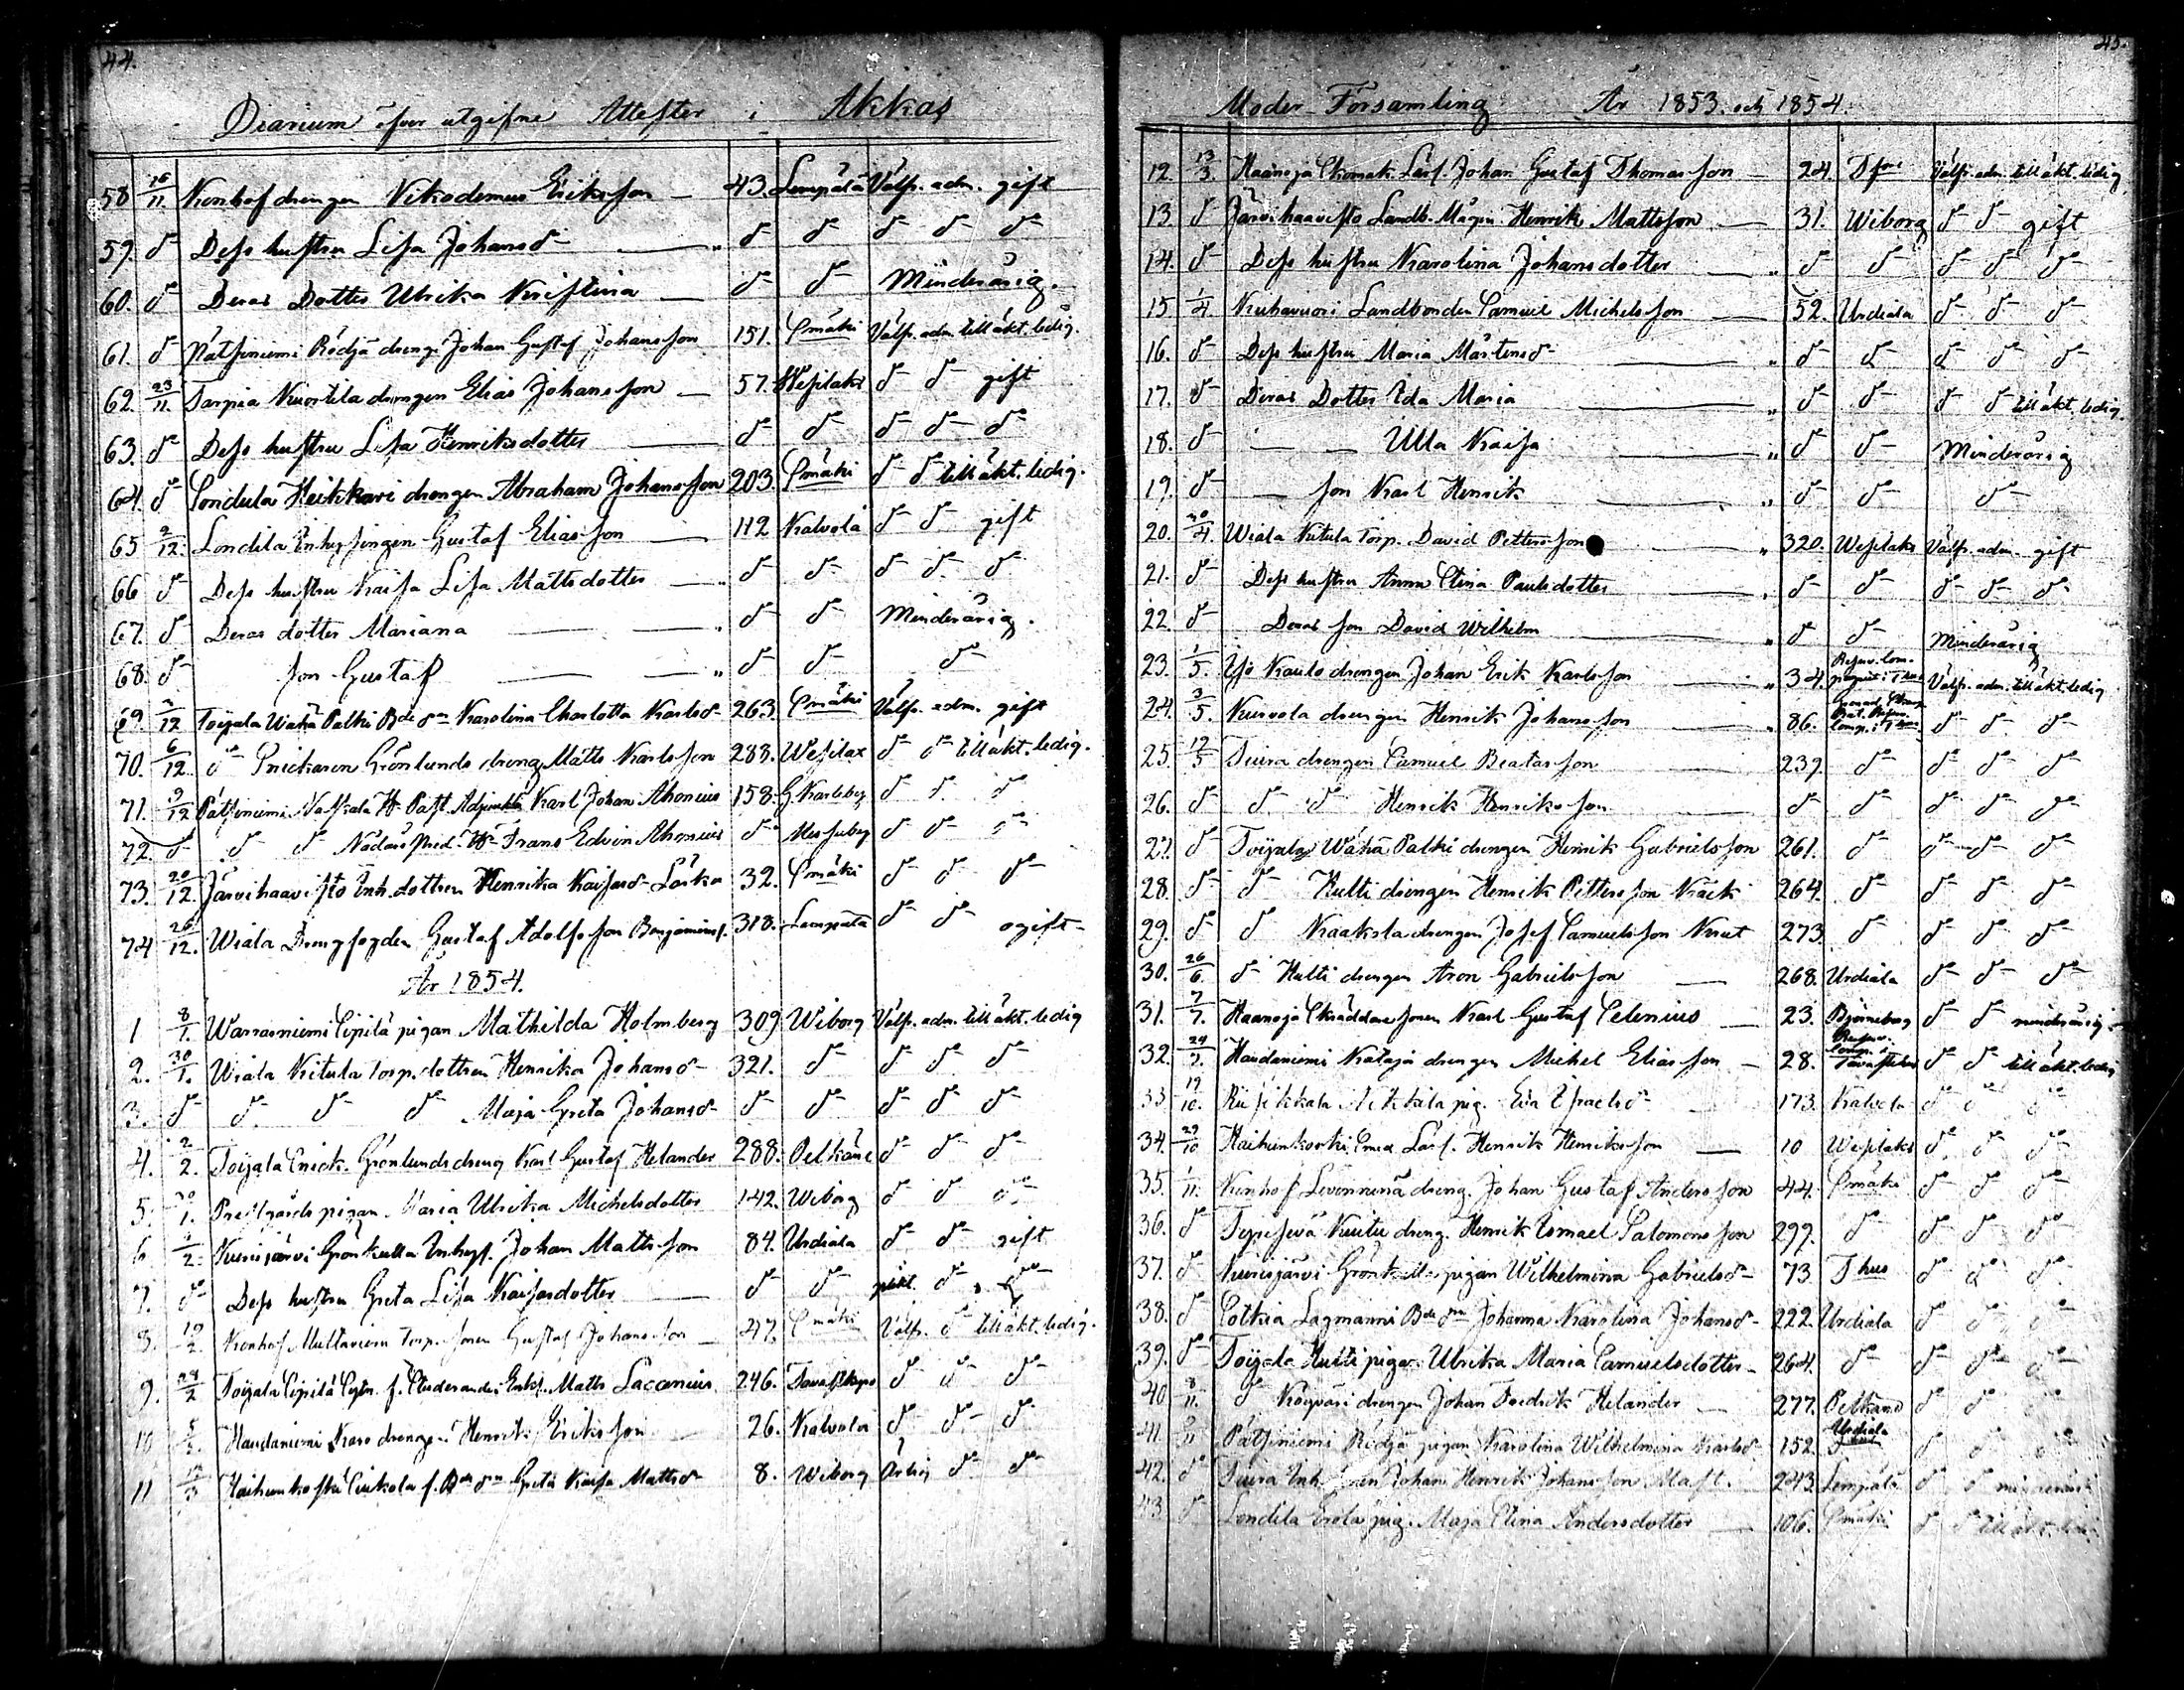 44.
Diarium öfver utgifne Attester i Akkas
58 26/11. Konhof drengen Nikodemus Eriksson — 43. Lempälä Välfr. adm. gift
59. d:o Dess hustru Lisa Johansd:r — " d:o d:o d:o d:o d:o
60. d:o Deras Dotter Ulrika Kristina — d:o d:o Minderårig.
61. d:o Pätsiniemi Rödjä drenge Johan Gustaf Johansson 151. Smäki Välfr. adm. till äkt. ledig.
62. 23/11. Tarpia Kuortila drengen Elias Johansson — 57. Wesilaks d:o d:o gift
63. d:o Dess hustru Lisa Henriksdotter — d:o d:o d:o d:o d:o
64. d:o Sondula Heikkari drengen Abraham Johansson 203. Smäki d:o d:o till äkt. ledig.
65 2/12. Londila Inhysingen Gustaf Eliasson — 112 Kalvola d:o d:o gift
66 d:o Dess hustru Kaisa Lisa Mattsdotter — " d:o d:o d:o d:o d:o
67. d:o Deras dotter Mariana — " d:o d:o Minderårig.
68. d:o Son Gustaf — " d:o d:o d:o
69. 2/12 Toijala Wähä Palki Bde d:rn Karolina Charlotta Karlsd:r 263. Smäki Välfr. adm. gift
70. 6/12. d:o Snickaren Grönlunds dreng Matts Karlsson 288. Wesilax d:o d:o till äkt. ledig.
71. 9/12 Pätsiniemi Past. Adjunkt Karl Johan Ahonius 158. G. Karleby d:o d:o d:o
72. d:o d:o d:o Nådårs Pred. Hr Frans Edvin Ahonius d:o d:o d:o d:o
73. 20/12. Järvihaavisto Inh. dottren Henrika Kaisasd:r Laika 32. Smäki d:o d:o d:o
74 26/12. Wiala Drengfogden Gustaf Adolfsson Benjaminsf. 318. Lempälä d:o d:o ogift
År 1854.
1 8/1. Warrasniemi Sipilä pigan Mathilda Holmberg 309 Wiborg Välfr. adm. till äkt. ledig
2. 30/1. Wiala Kitula Torp. dottren Henrika Johansd:r 321. d:o d:o d:o d:o
3. d:o d:o d:o d:o Maja Greta Johansd:r d:o d:o d:o d:o d:o
4. 2/2. Toijala Snick. Grönlunds dreng Karl Gustaf Helander 288. Pelkäne d:o d:o d:o
5. 30/1. Prestgårds pigan Maria Ulrika Michelsdotter 142. Wiborg d:o d:o d:o
6 4/2. Kurisjärvi Grönkulla Inhys. Johan Mattsson 84. Urdiala d:o d:o gift
7. d:o Dess hustru Greta Lisa Kaisasdotter — d:o d:o d:o
8. 19/2. Konhof Multavieru Torp. sonen Gustaf Johansson — 47. Smäki Välfr. d:o till äkt. ledig.
9. 28/2 Toijala Sipilä f. Studerande Matts Lacanius 246. Tavastkyro d:o d:o d:o
10 5/3. Haudaniemi drengen Henrik Eriksson 26. Kalvola d:o d:o d:o
11 12/3 Haihunkoski Cuikola f. Bde d:rn Greta Kaisa Mattsd:r 8. Wiborg Ärlig d:o d:o
45.
Moder-Församling År 1853. och 1854.
12. 13/3. Haanoja Skomak. Lärl. Johan Gustaf Thomasson — 24. Välfr. adm. till äkt. ledig
13. d:o Järvihaavisto Landb. Mågen Henrik Mattsson — 31. Wiborg d:o d:o gift
14. d:o Dess hustru Karolina Johansdotter — " d:o d:o d:o d:o d:o
15 1/4 Kuhavuori Landbonden Samuel Michelsson — 52. Urdiala d:o d:o d:o
16. d:o Dess hustru Maria Mårtensd:r — " d:o d:o d:o d:o d:o
17. d:o Deras Dotter Ida Maria — " d:o d:o d:o d:o till äkt. ledig.
18. d:o — — Ulla Kaisa — " d:o d:o Minderårig
19. d:o — Son Karl Henrik — " d:o d:o d:o
20. 20/4 Wiala Kitula Torp. David Pettersson — " 320. Wesilaks Välfr. adm. gift
21. d:o Dess hustru Anna Stina Paulsdotter — " d:o d:o d:o d:o d:o
22. d:o Deras son David Wilhelm — " d:o d:o Minderårig
23. 1/5. Yjö Kaulo drengen Johan Erik Karlsson — " 34. Välfr. adm. till äkt. ledig
24. 3/5. Kurvola drengen Henrik Johansson — " 86. d:o d:o d:o
25. 12/5 Tiura drengen Samuel Beatasson — 239. d:o d:o d:o d:o
26. d:o d:o d:o Henrik Henriksson — d:o d:o d:o d:o d:o
27. d:o Toijala Wähä Palki drengen Henrik Gabrielsson 261. d:o d:o d:o d:o
28. d:o d:o Hulti drengen Henrik Pettersson Kack 264. d:o d:o d:o d:o
29. d:o d:o Kaaksla drengen Josef Samuelsson Knut 273. d:o d:o d:o d:o
30. 26/6. d:o Hulti drengen Aron Gabrielsson — 268. Urdiala d:o d:o d:o
31. 7/7. Haanoja Skräddare sonen Karl Gustaf Selenius — 23. Björneborg d:o d:o minderårig
32. 24/7. Haudaniemi Kataja drengen Michel Eliasson — 28. d:o d:o till äkt. ledig
33 19/10. Riisikkala pig. Eva Israelsd:r 173. Kalvola d:o d:o d:o
34. 29/10 Haihunkoski Smed Lärl. Henrik Henriksson — 10 Wesilaks d:o d:o d:o
35. 1/11. Konhof dreng. Johan Gustaf Andersson 44. Smäki d:o d:o d:o
36. d:o dreng. Henrik Ismael Salomonsson 299. d:o d:o d:o d:o
37. d:o Kurisjärvi pigan Wilhelmina Gabrielsd:r 73 T hus d:o d:o d:o
38. d:o Sotkia Lagmanni Bde d:rn Johanna Karolina Johansd:r 222. Urdiala d:o d:o d:o
39. d:o Toijala Hulti pigan Ulrika Maria Samuelsdotter — 264. d:o d:o d:o d:o
40 8/11. d:o drengen Johan Fredrik Helander — 277. Pelkäne d:o d:o d:o
41. 9/11 Pätsiniemi Rödjä pigan Karolina Wilhelmina Karlsd:r 152. Urdiala d:o d:o d:o
42. d:o Tiura Inh. sonen Johan Henrik Johansson Mast. 243. Lempälä d:o d:o minderårig
43 d:o Londila Erola pig. Maja Stina Andersdotter — 106. Smäki d:o d:o till äkt. ledig